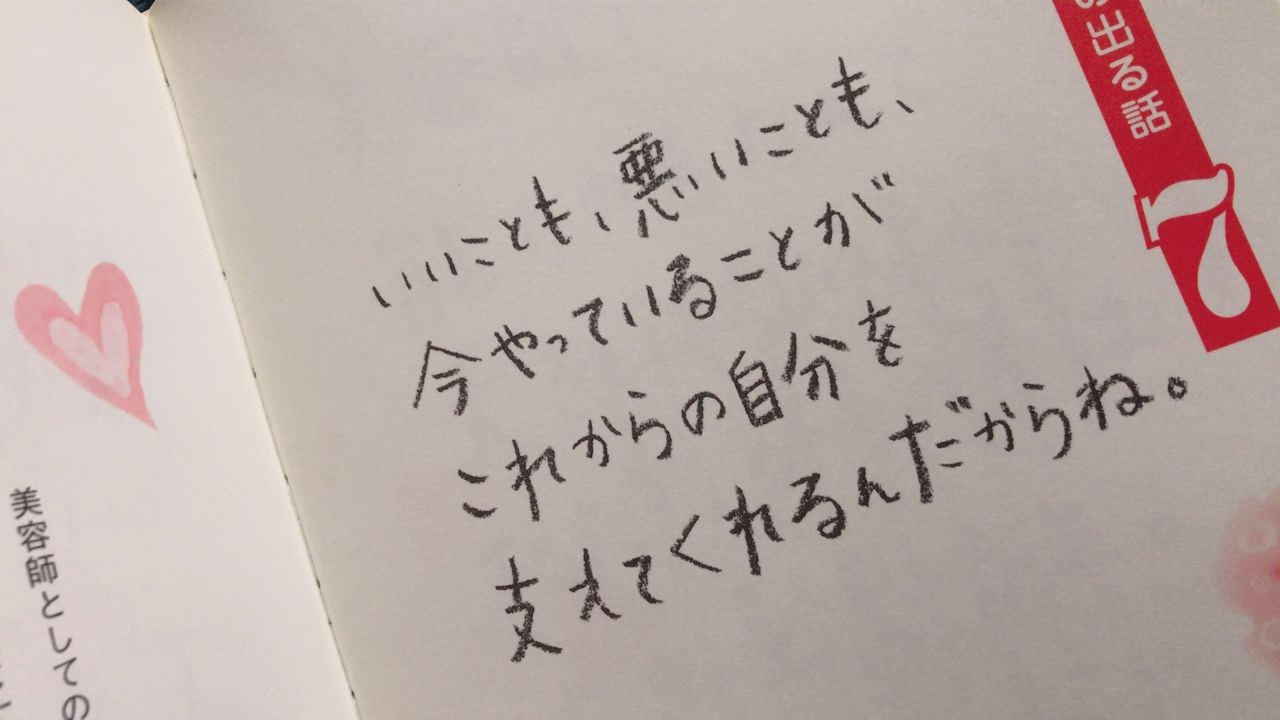 いいことも、悪いことも、
今やっていることが
これからの自分を
支えてくれるんだからね。
出る話
7
美容師としての